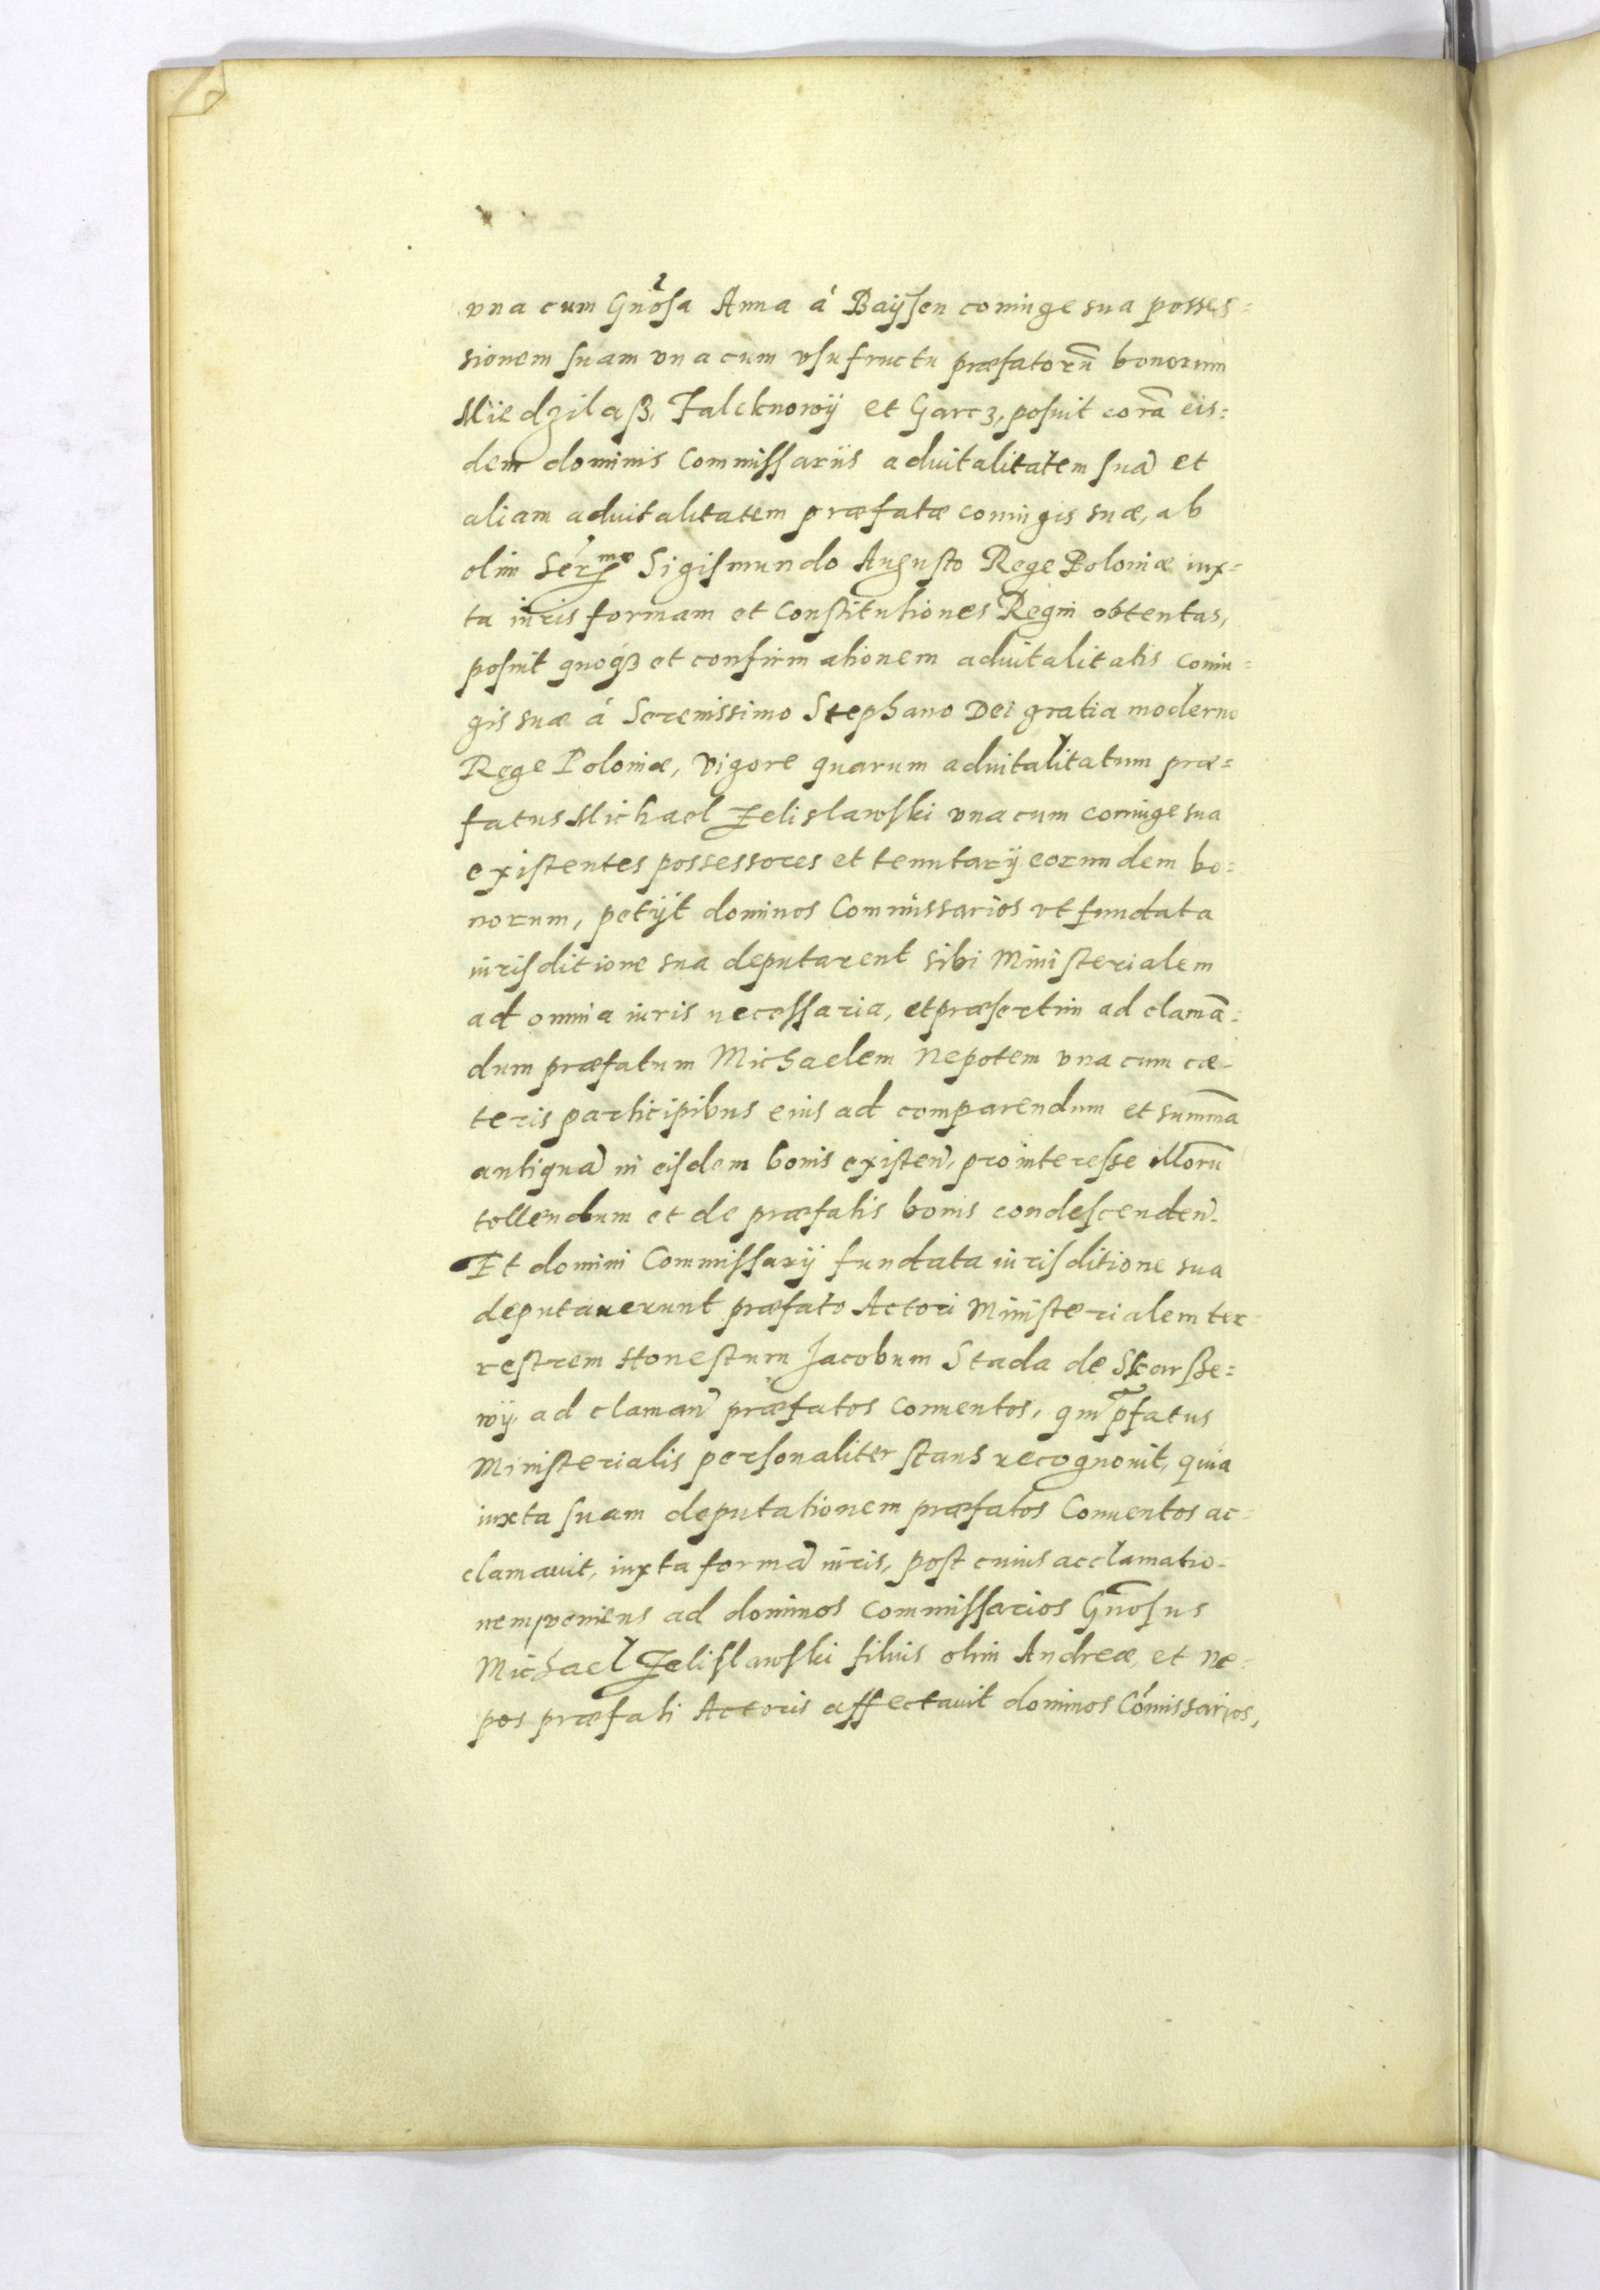 vna cum Gnõsa Anna á Baÿsen coniuge sua posses=
sionem suam vna cum vsufructu præfatorũ bonorum
Miedzilaß, Falcknowÿ et Garcz, posuit corã eis=
dem dominis Commissariis aduitalitatem suã et
aliam aduitalitatem præfatæ coniugis suæ, ab
olim Ser:mo Sigismundo Augusto Rege Poloniæ iux=
ta iuris formam et Constitutiones Regni obtentas,
posuit quoqȝ et confirmationem aduitalitatis coniu=
gis suæ á Serenissimo Stephano Dei gratia moderno
Rege Poloniæ, vigore quarum aduitalitatum præ=
fatus Michael Zelislawski vna cum coniuge sua
existentes possessores et tenutarÿ eorumdem bo=
norum, petÿt dominos Commissarios vt fundata
iurisditione sua deputarent sibi Ministerialem
ad omnia iuris necessaria, et præsertim ad clamã=
dum præfatum Michaelem Nepotem vna cum cæ=
teris participibus eius ad comparendum et summã
antiquã in eisdem bonis existeñ, pro interesse illorũ
tollendum et de præfatis bonis condescendeñ.
Et domini Commissarÿ fundata iurisditione sua
deputauerunt præfato Actori Ministerialem ter=
restrem Honestum Jacobum Stada de Skarsse=
wÿ, ad clamañ præfatos Conuentos, qui p̃fatus
Ministerialis personaliter stans recognouit, quia
iuxta suam deputationem præfatos Conuentos ac=
clamauit, iuxta formã iuris, post cuius acclamatio=
nem veniens ad dominos Commissarios Gnõsus
Michael Zelislawski filius olim Andreæ, et Ne=
pos præfati Actoris affectauit dominos Cõmissarios,